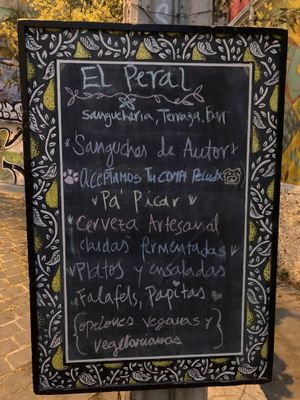 El Peral
Sanguchería, Terraza, Bar
Sanguches de Autor
Aceptamos Tu Compi Peludx
Pa' Picar
Cerveza Artesanal
chudas fermentadas
Platos y ensaladas
Falafels, Papitas
{opciones veganas y
vegetarianas}